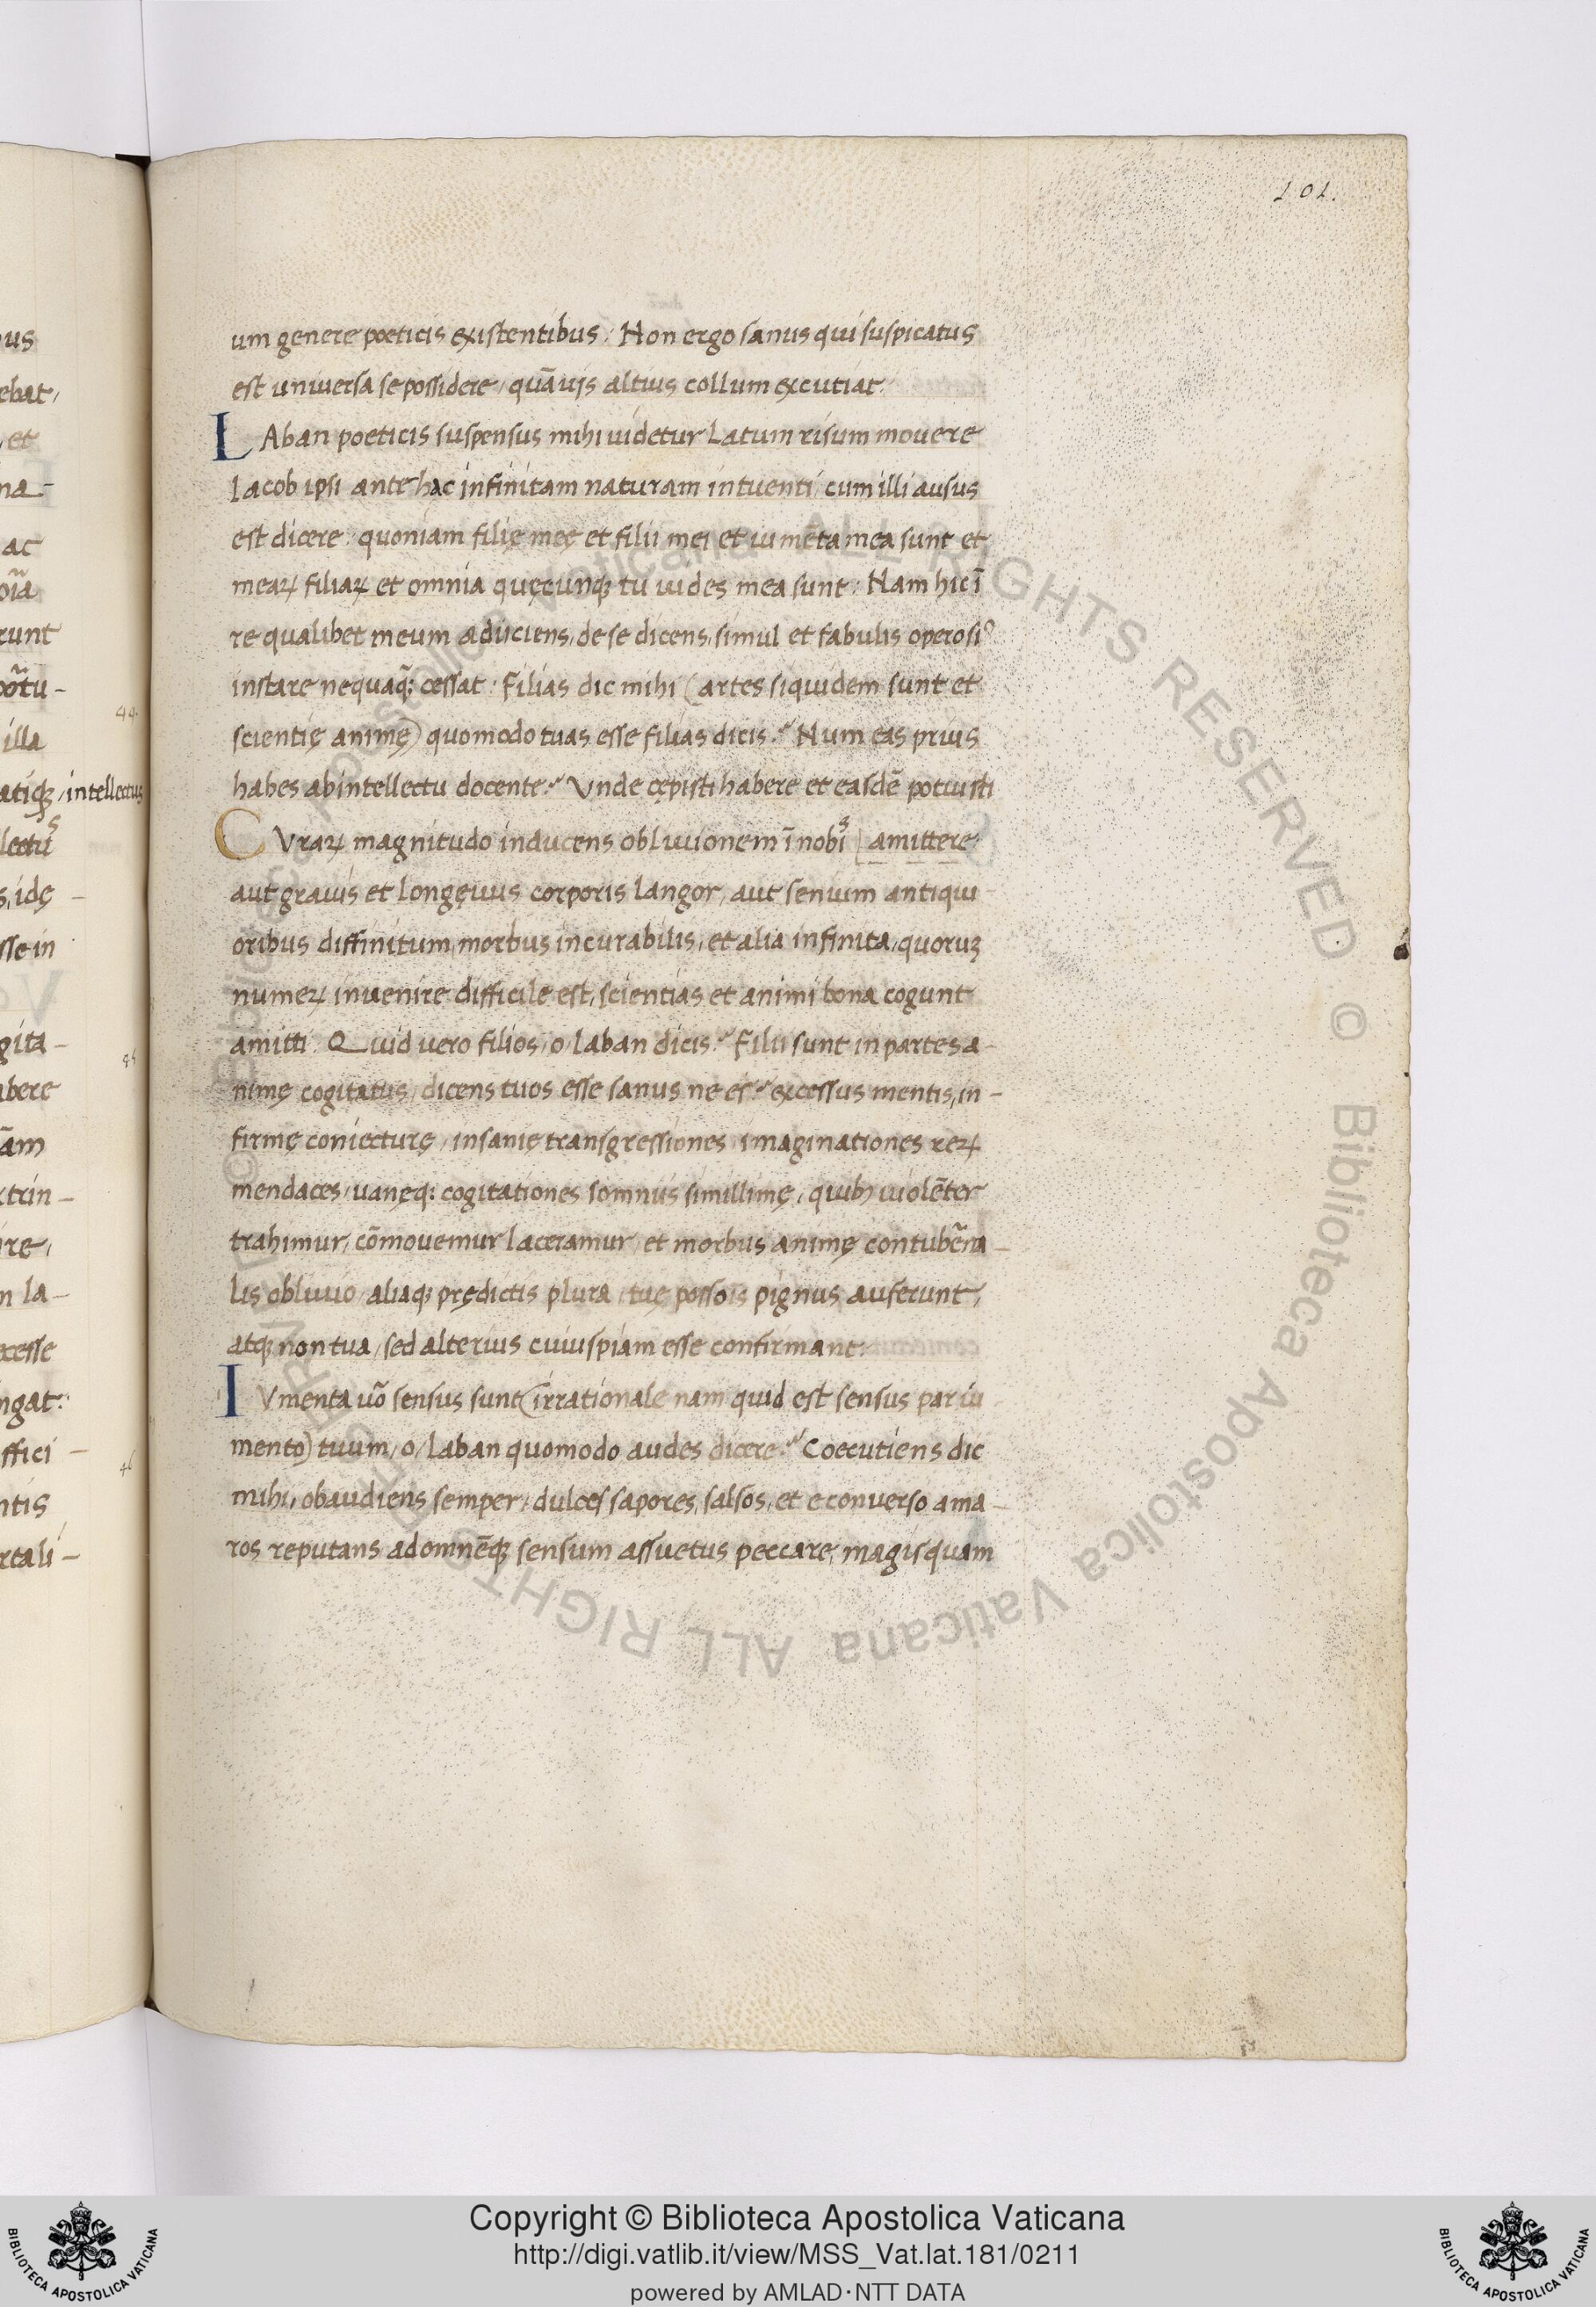 101.
um genere poeticis existentibus: Non ergo sanus qui suspicatus
est universa se possidere, quāvis altius collum excutiat.
LAban poeticis suspensus mihi videtur Latum risum movere
Iacob ipsi ante hac infinitam naturam intuenti, cum illi ausus
est dicere: quoniam filię męę et filii mei et iumēta mea sunt et
meaꝝ filiaꝝ et omnia quęcunqꝫ tu vides mea sunt: Nam hic ī
re qualibet meum adiiciens, de se dicens, simul et fabulis operosiꝰ
instare nequaq̃ꝫ cessat: Filias dic mihi (artes siquidem sunt et
scientię animę) quomodo tuas esse filias dicis? Num eas prius
habes ab intellectu docente? Unde cępisti habere et easdē potuisti
CVraꝝ magnitudo inducens oblivionem ī nobis amittere?
aut gravis et longęvus corporis langor, aut senium antiqui
oribus diffinitum, morbus incurabilis, et alia infinita, quoruꝫ
numeꝝ invenire difficile est, scientias et animi bona cogunt
amitti. Quid vero filios, o, laban dicis? Filii sunt in partes a-
nimę cogitatus, dicens tuos esse sanus ne es? excessus mentis, in-
firmę coniecturę, insanię transgressiones imaginationes reꝝ
mendaces, vanęqꝫ cogitationes somniis simillimę, quibꝫ violēter
trahimur, cōmovemur laceramur, et morbus animę contubēna-
lis oblivio, aliaqꝫ prędictis plura, tuę possois pignus auferunt,
atqꝫ non tua, sed alterius cuiuspiam esse confirmant:
IVmenta vō sensus sunt (irrationale nam quid est sensus par iu
mento) tuum, o, laban quomodo audes dicere? Coecutiens dic
mihi, obaudiens semper, dulces sapores, salsos, et e converso ama-
ros reputans ad omnēqꝫ sensum assuetus peccare, magis quam
ebat,
et
ac
runt
illa
intellectus
sse in
gita-
bere
44
45
46
© Biblioteca Apostolica Vaticana ALL RIGHTS RESERVED © Biblioteca Apostolica Vaticana ALL RIGHTS RESERVED
Copyright © Biblioteca Apostolica Vaticana
http://digi.vatlib.it/view/MSS_Vat.lat.181/0211
powered by AMLAD·NTT DATA
BIBLIOTECA APOSTOLICA VATICANA
BIBLIOTECA APOSTOLICA VATICANA